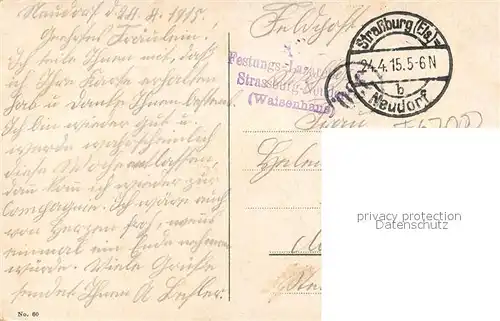 Neudorf d. 24. 4. 1915.
Geehrtes Fräulein.
Ich teile Ihnen mit, daß
ich Ihre Karte erhalten
hab u. danke Ihnen bestens.
Ich bin wieder gut u.
werde wahrscheinlich
diese Woche entlassen,
dan kom ich wieder zur
Compagnie. Ich wäre auch
von Herzen froh, wenn
einmal ein Ende nehmen
würde. Viele Grüße
sendet Ihnen A
No. 60
Feldpost
Festungs-Lazarett
Strassburg
(Waisenhaus)
Straßburg (Els)=
24.4.15.5-6N
b
Neudorf
privacy protection
Datenschutz